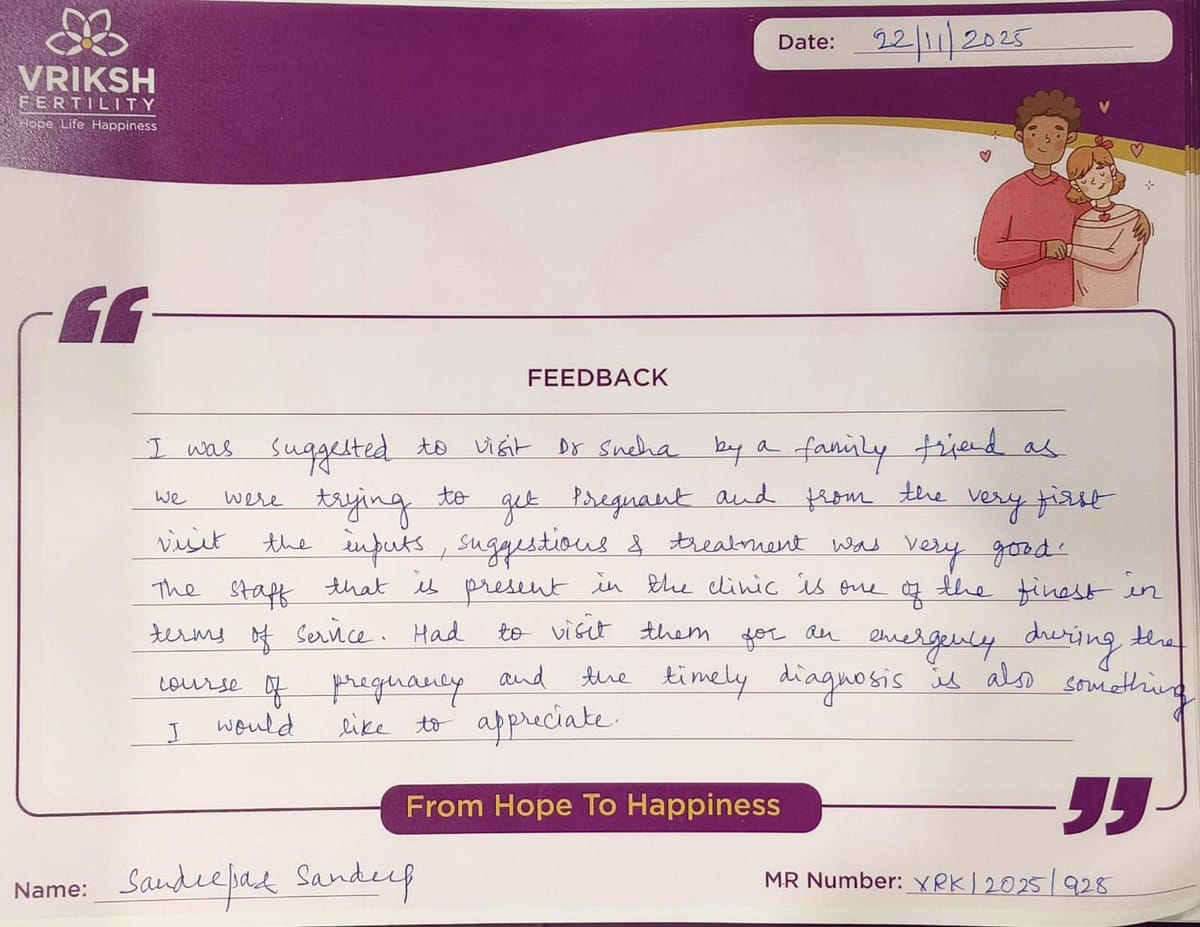 VRIKSH
FERTILITY
Hope Life Happiness
Date: 22/11/2025
FEEDBACK
I was suggested to visit Dr Sneha by a family friend as
we were trying to get Pregnant and from the very first
visit the inputs, suggestions & treatment was very good.
The staff that is present in the clinic is one of the finest in
terms of Service. Had to visit them for an emergency during the
course of pregnancy and the timely diagnosis is also something
I would like to appreciate.
From Hope To Happiness
Name: Sandeep
MR Number: VRK/2025/928